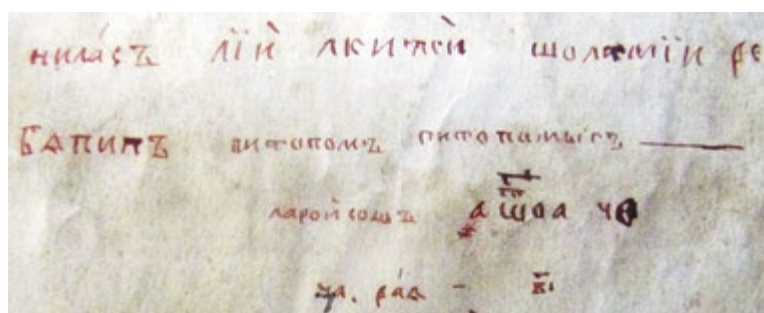 нила́съ лїй лкитей шолтмїи ре
бѧпипъ дитопомъ питопамысъ
ларой сошъ а ш҃оа че
ра́ѧ - в҃і